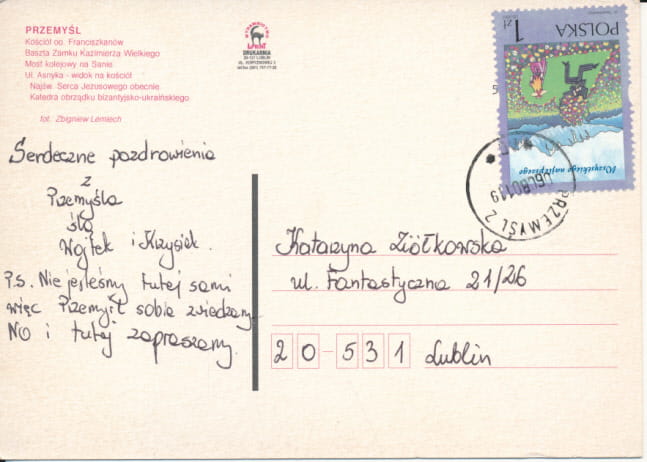 PRZEMYŚL
Kościół oo. Franciszkanów
Baszta Zamku Kazimierza Wielkiego
Most kolejowy na Sanie
Ul. Asnyka - widok na kościół
Najśw. Serca Jezusowego obecnie
Katedra obrządku bizantyjsko-ukraińskiego
fot. Zbigniew Lemiech
WYDAWNICTWO
DRUKARNIA
POLSKA
1 zł
Wszystkiego najlepszego
PRZEMYŚL 2
Serdeczne pozdrowienia
z
Przemyśla
ślą
Wojtek i Krzysiek.
P.S. Nie jesteśmy tutej sami
więc Przemyśl sobie zwiedzamy
NO i tutej zapraszamy.
Katarzyna Ziółkowska
ul. Fantastyczna 21/26
20-531 Lublin